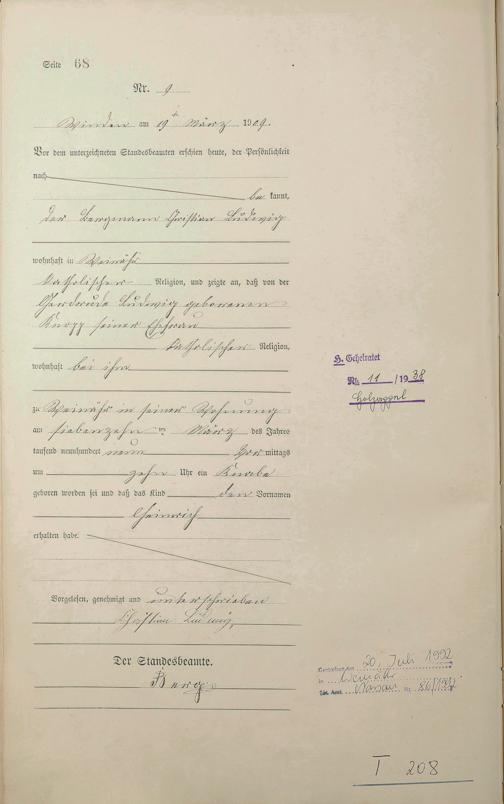 Seite 68
Nr. 9
Winden am 19ten März 1909.
Vor dem unterzeichneten Standesbeamten erschien heute, der Persönlichkeit
nach
be kannt,
der Bergmann Christian Ludwig
wohnhaft in Weinähr
katholischer Religion, und zeigte an, daß von der
Gerdrude Ludwig geborenen
Knopp seiner Ehefrau
katholischer Religion,
wohnhaft bei ihm
zu Weinähr in seiner Wohnung
am siebenzehn ten März des Jahres
tausend neunhundert neun Vor mittags
um zehn Uhr ein Knabe
geboren worden sei und daß das Kind den Vornamen
Heinrich
erhalten habe.
Vorgelesen, genehmigt und unterschrieben
Christian Ludwig
Der Standesbeamte.
Berg
H. Geheiratet
Nr. 11 / 1938
Holzappel
Gestorben am 20. Juli 1992
in Weinähr
Sta. Amt Nassau Nr. 86/1992
T 208